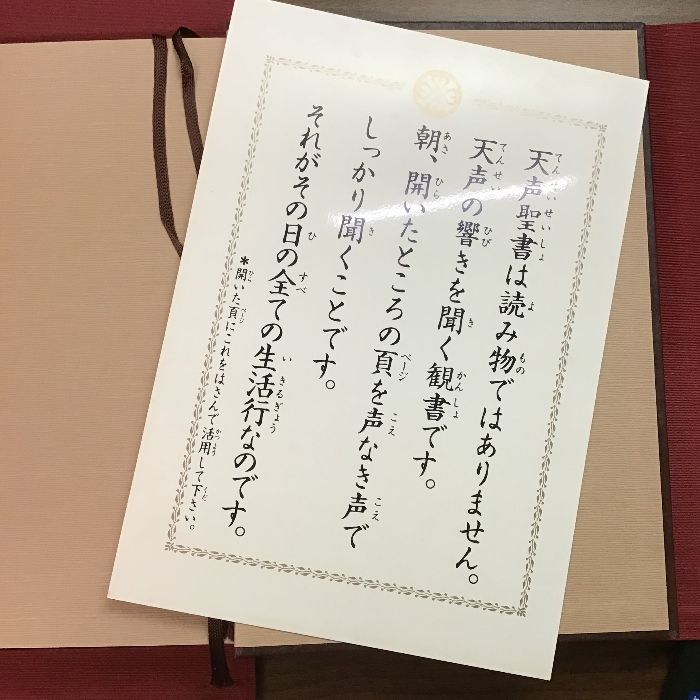 天声聖書は読み物ではありません。
天声の響きを聞く観書です。
朝、開いたところの頁を声なき声で
しっかり聞くことです。
それがその日の全ての生活行なのです。
*開いた頁にこれをはさんで活用して下さい。